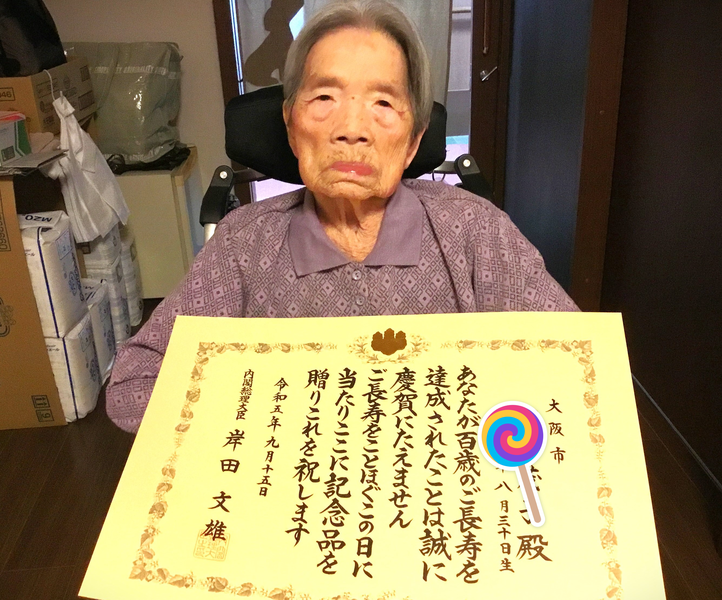 大阪市
殿
八月三十日生
あなたが百歳のご長寿を
達成されたことは誠に
慶賀にたえません
ご長寿をことほぐこの日に
当たりここに記念品を
贈りこれを祝します
令和五年九月十五日
内閣総理大臣 岸田文雄